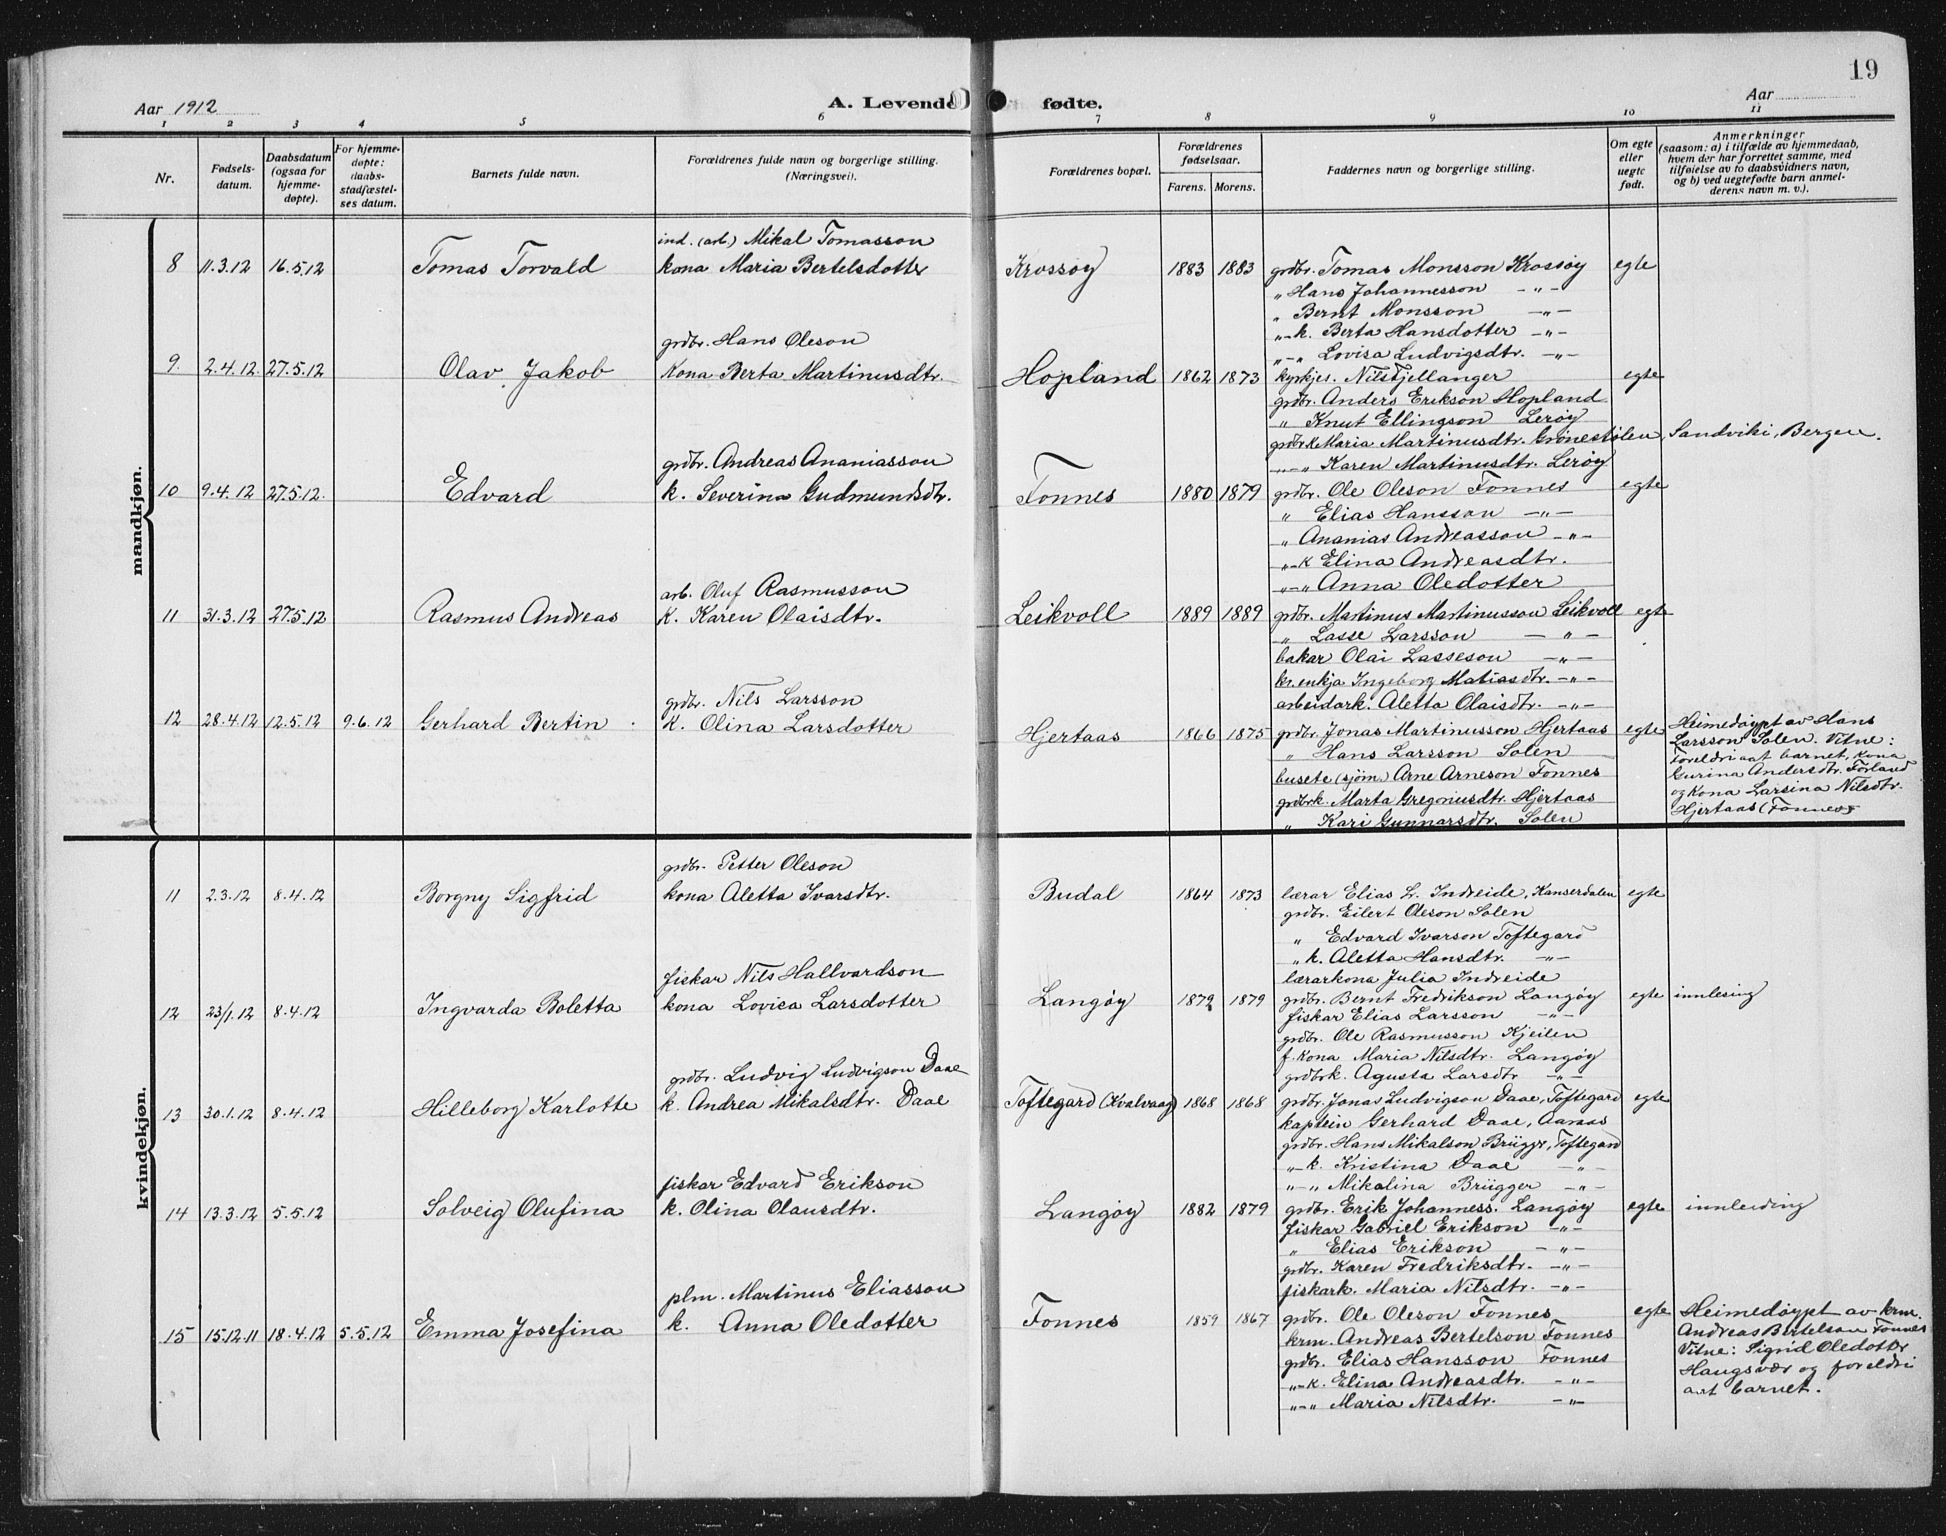 19
Aar 1912 A. Levende fødte. Aar
1 2 3 4 5 6 7 8 9 10 11
Nr. Fødselsdatum. Daabsdatum (ogsaa for hjemmedøpte). For hjemmedøpte: daabsstadfæstelses datum. Barnets fulde navn. Forældrenes fulde navn og borgerlige stilling. (Næringsvei). Forældrenes bopæl. Forældrenes fødselsaar. Farens. Morens. Faddernes navn og borgerlige stilling. Om egte eller uegte født. Anmerkninger (saasom: a) i tilfælde av hjemmedaab, hvem der har forrettet samme, med tilføielse av to daabsvidners navn, og b) ved uegtefødte barn anmelderens navn m. v.).
mandkjøn.
ind. (arb.) Mikal Tomasson
8 11.3.12 16.5.12 Tomas Torvald kona Maria Bertelsdotter Krossøy 1883 1883 grdbr. Tomas Monsson Krossøy egte
" Hans Johannesson -"-
" Bernt Monsson -"-
"-k. Berta Hansdotter -"-
grdbr. Hans Oleson "-" Lovisa Ludvigsdtr. -"-
9. 2.4.12 27.5.12 Olav Jakob Kona Berta Martinusdtr. Hopland 1862 1873 kyrkjes. Nils Fjellanger egte
grdbr. Anders Erikson Hopland
" Knut Ellingson Lerøy
grdbr.k. Maria Martinusdtr. Grönestølen, Sandviki, Bergen.
grdbr. Andreas Ananiasson "-" Karen Martinusdtr. Lerøy
10 9.4.12 27.5.12. Edvard k. Severina Gudmundsdtr. Fonnes 1880 1879 grdbr. Ole Oleson Fonnes egte
" Elias Hansson -"-
" Ananias Andreasson -"-
"-k Elina Andreasdtr.
arb. Oluf Rasmusson "-" Anna Oledotter
11 31.3.12 27.5.12 Rasmus Andreas K. Karen Olaisdtr. Leikvoll 1889 1889 grdbr. Martinus Martinusson Leikvoll egte
" Lasse Larsson -"-
bakar Olai Lasseson -"-
kr.enkja Ingeborg Matiasdtr. -"-
grdbr. Nils Larsson arbeidark. Aletta Olaisdtr. -"-
12 28.4.12 12.5.12 9.6.12 Gerhard Bertin K. Olina Larsdotter Hjertaas 1866 1875 grdbr. Jonas Martinusson Hjertaas egte Heimedøypt av Hans
" Hans Larsson Solen Larsson Solen. Vitne:
busete (sjöm.) Arne Arneson Fonnes Foreldri aat barnet, kona
grdbrk. Marta Gregoriusdtr. Hjertaas Gurina Andersdtr.Förland
" Kari Gunnarsdtr. Solen og kona Larsina Nilsdtr.
Hjertaas (Fonnes)
kvindekjøn.
grdbr. Petter Oleson
11 2.3.12 8.4.12 Borgny Sigfrid kona Aletta Ivarsdtr. Budal 1864 1873 lærar Elias L. Indreide, Kanserdalen egte
grdbr. Eilert Oleson Solen
" Edvard Ivarson Toftegard
"k. Aletta Hansdtr. -"-
fiskar Nils Hallvardson lærarkona Julia Indreide
12 23/1.12 8.4.12 Ingvarda Boletta kona Lovica Larsdotter Langøy 1872 1879 grdbr. Bernt Fredrikson Langøy egte innlesing
fiskar Elias Larsson -"-
grdbr. Ole Rasmusson Kjeilen
f. kona Maria Nilsdtr. Langøy
grdbr. Ludvig Ludvigson Daae grdbrk. Agusta Larsdtr -"-
13 30.1.12 8.4.12 Hilleborg Karlotte k. Andrea Mikalsdtr. Daae Toftegard (Kvalvaag) 1868 1868 grdbr. Jonas Ludvigson Daae, Toftegard egte
kaptein Gerhard Daae, Aaraas
grdbr. Hans Mikalson Brügger, Toftegard
"-k. Kristina Daae -"-
fiskar Edvard Erikson "-" Mikalina Brügger -"-
14 13.3.12 5.5.12 Solveig Olufina k. Olina Olausdtr. Langøy 1882 1879 grdbr. Erik Johanness. Langøy egte innleiding
fiskar Gabriel Erikson -"-
" Elias Erikson -"-
grdbr. Karen Fredriksdtr. -"-
plm. Martinus Eliasson fiskark. Maria Nilsdtr. -"-
15 15.12.11 18.4.12 5.5.12 Emma Josefina k. Anna Oledotter Fonnes 1859 1867 grdbr. Ole Oleson Fonnes egte Heimedøypt av krm.
krm. Andreas Bertelson Fonnes Andreas Bertelson Fonnes
grdbr. Elias Hansson Fonnes Vitne: Sigrid Oledottr
"-k. Elina Andreasdtr. -"- Haugsvær og foreldri
"-" Maria Nilsdtr. -"- aat barnet.